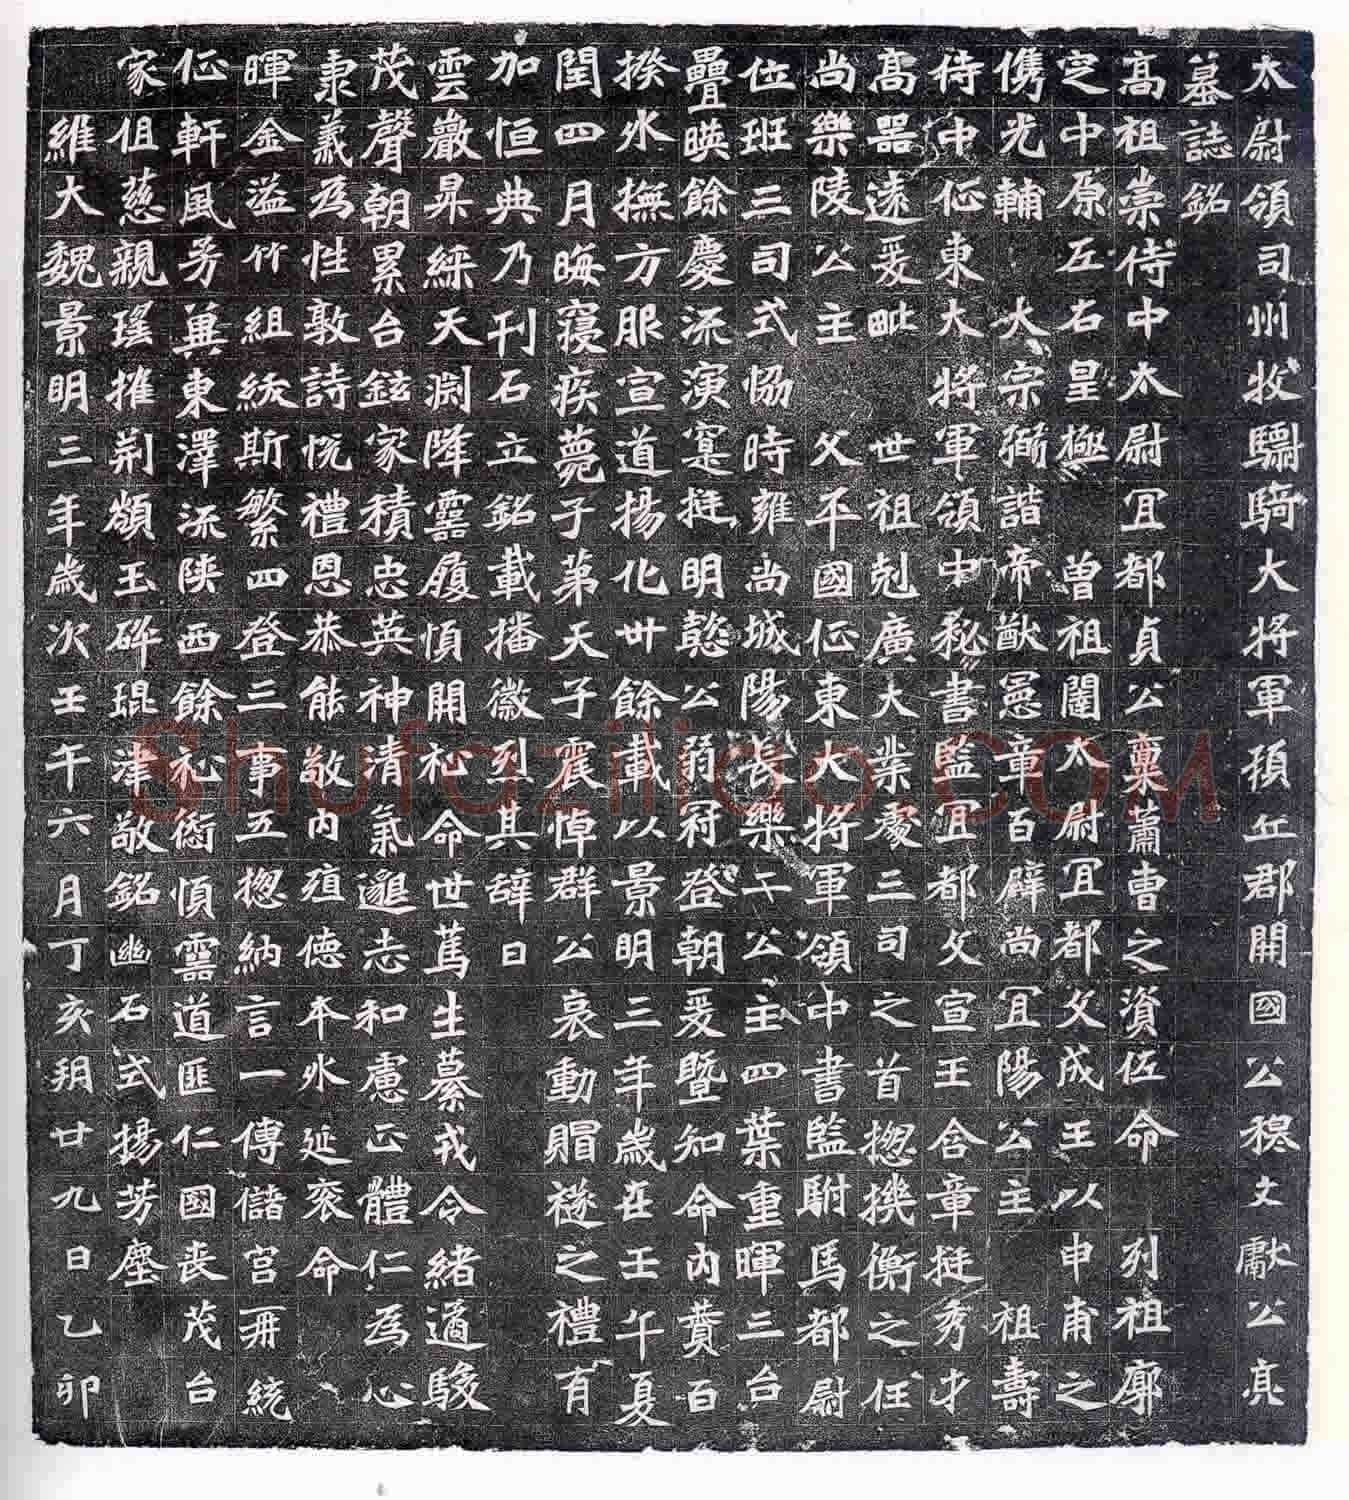 太尉領司州牧驃騎大將軍頓丘郡開國公穆文獻公亮
墓誌銘
高祖崇侍中太尉冝都貞公稟蕭曹之資佐命 列祖廓
定中原左右皇極 曾祖闥太尉冝都文成王以申甫之
儁光輔 大宗弼諧帝猷憲章百辟尚冝陽公主 祖壽
侍中征東大將軍領中秘書監冝都文宣王含章挺秀才
高器遠爰毗 世祖剋廣大業處三司之首揔機衡之任
尚樂陵公主 父平國征東大將軍領中書監駙馬都尉
位班三司式協時雍尚城陽長樂二公主四葉重暉三台
疊暎餘慶流演寔挺明懿公弱冠登朝爰暨知命內贊百
揆外撫方服宣道揚化卅餘載以景明三年歲在壬午夏
閏四月晦寢疾薨于弟天子震悼群公哀動賵襚之禮有
加恒典乃刊石立銘載播徽烈其辭曰
雲巖昇綵天淵降靈履順開祉命世篤生纂戎令緒邁駿
茂聲朝累台鉉家積忠英神清氣邈志和慮正體仁為心
秉義為性敦詩恱禮恩恭能敬內殖德本外延袞命
暉金溢竹組綬斯繁四登三事五揔納言一傅儲宮再統
征軒風芳冀東澤流陝西餘祉衝順靈道匪仁國喪茂台
家伹慈親瑤摧荊頹玉碎琨津敬銘幽石式揚芳塵
維大魏景明三年歲次壬午六月丁亥朔廿九日乙卯
shufaziliao.COM